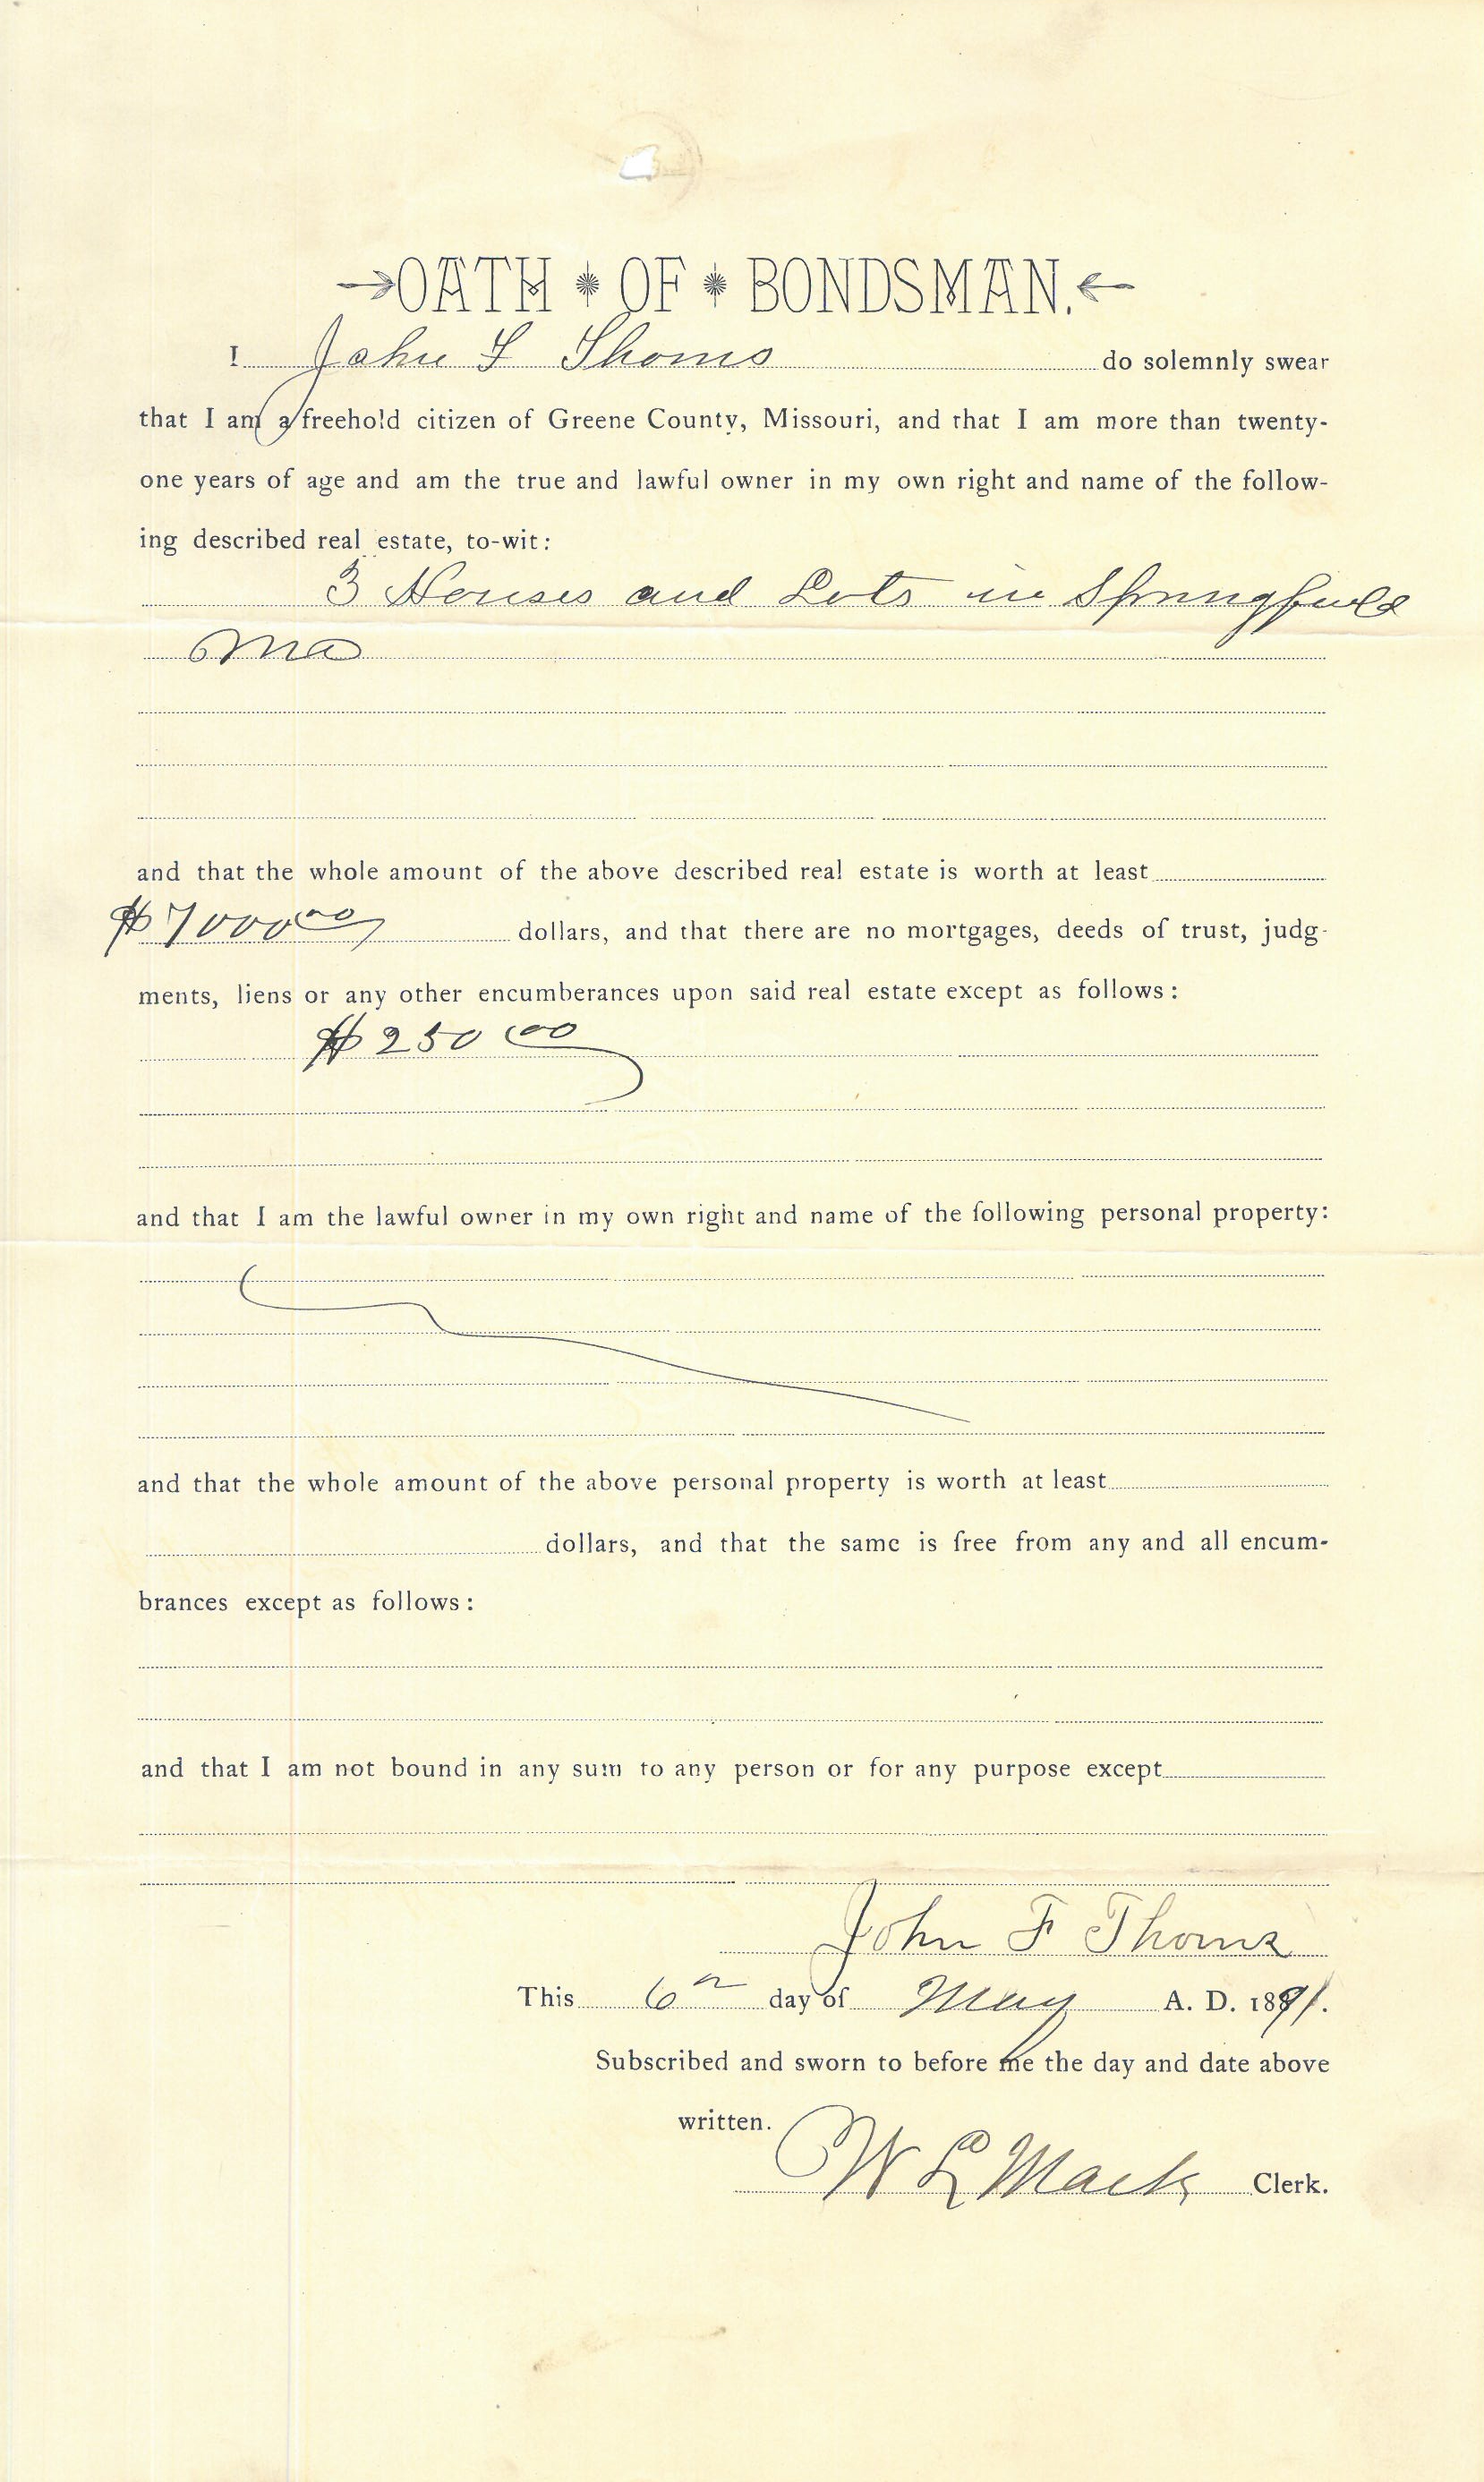 OATH OF BONDSMAN.
I John F Thoms do solemnly swear
that I am a freehold citizen of Greene County, Missouri, and that I am more than twenty-
one years of age and am the true and lawful owner in my own right and name of the follow-
ing described real estate, to-wit:
3 Houses and Lots in Springfield
Mo
and that the whole amount of the above described real estate is worth at least
$7000 00 dollars, and that there are no mortgages, deeds of trust, judg-
ments, liens or any other encumberances upon said real estate except as follows:
$250 00
and that I am the lawful owner in my own right and name of the following personal property:
and that the whole amount of the above personal property is worth at least
dollars, and that the same is free from any and all encum-
brances except as follows:
and that I am not bound in any sum to any person or for any purpose except
John F Thoms
This 6th day of May A. D. 1891.
Subscribed and sworn to before me the day and date above
written.
W L Mack Clerk.